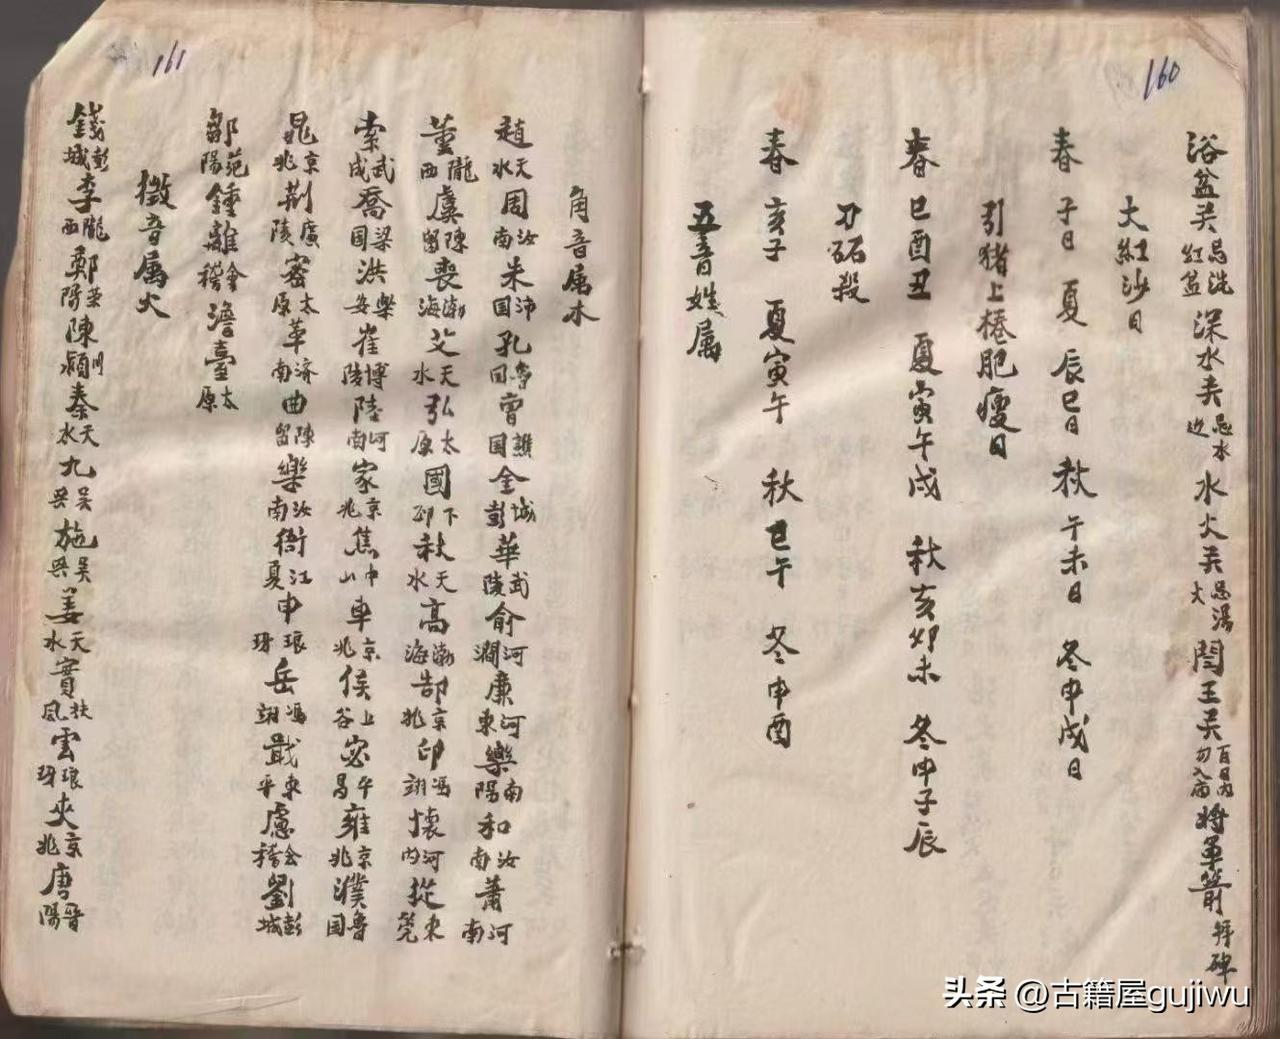 160
浴盆关 忌洗红盆 深水关 忌水近 水火关 忌湯火 閻王关 百日内勿入庙 将軍箭
大紅沙日
春 子日 夏 辰巳日 秋 午未日 冬申戌日
引猪上棬肥瘦日
春 巳酉丑 夏寅午戌 秋亥卯未 冬申子辰
刀砧殺
春 亥子 夏寅午 秋 巳午 冬申酉
五音姓属
161
角音属木
趙 天水 周 汝南 朱 沛国 孔 魯国 曾 譙国 金 彭城 華 武陵 俞 河澗 廉 河東 樂 南陽 和 汝南 蕭 河南
董 隴西 虞 陳留 喪 渤海 艾 天水 弘 太原 國 下邳 秋 天水 高 渤海 郜 京兆 印 馮翊 懷 河内 從 東莞
索 武成 喬 梁国 洪 樂安 崔 博陵 陸 河南 家 京兆 焦 中山 車 京兆 侯 上谷 宓 平昌 雍 京兆 濮 魯国
晁 京兆 荆 廣陵 宻 太原 革 济南 曲 陳留 樂 汝南 衙 江夏 申 琅玡 岳 馮翊 戢 東平 慮 会稽 劉 彭城
鄒 范陽 鍾離 會稽 澹臺 太原
徵音属火
錢 彭城 李 隴西 鄭 荥陽 陳 颍川 秦 天水 九 吴 施 吴 姜 天水 竇 扶風 雲 琅玡 夾 京兆 唐 晉陽
头条 @古籍屋gujiwu